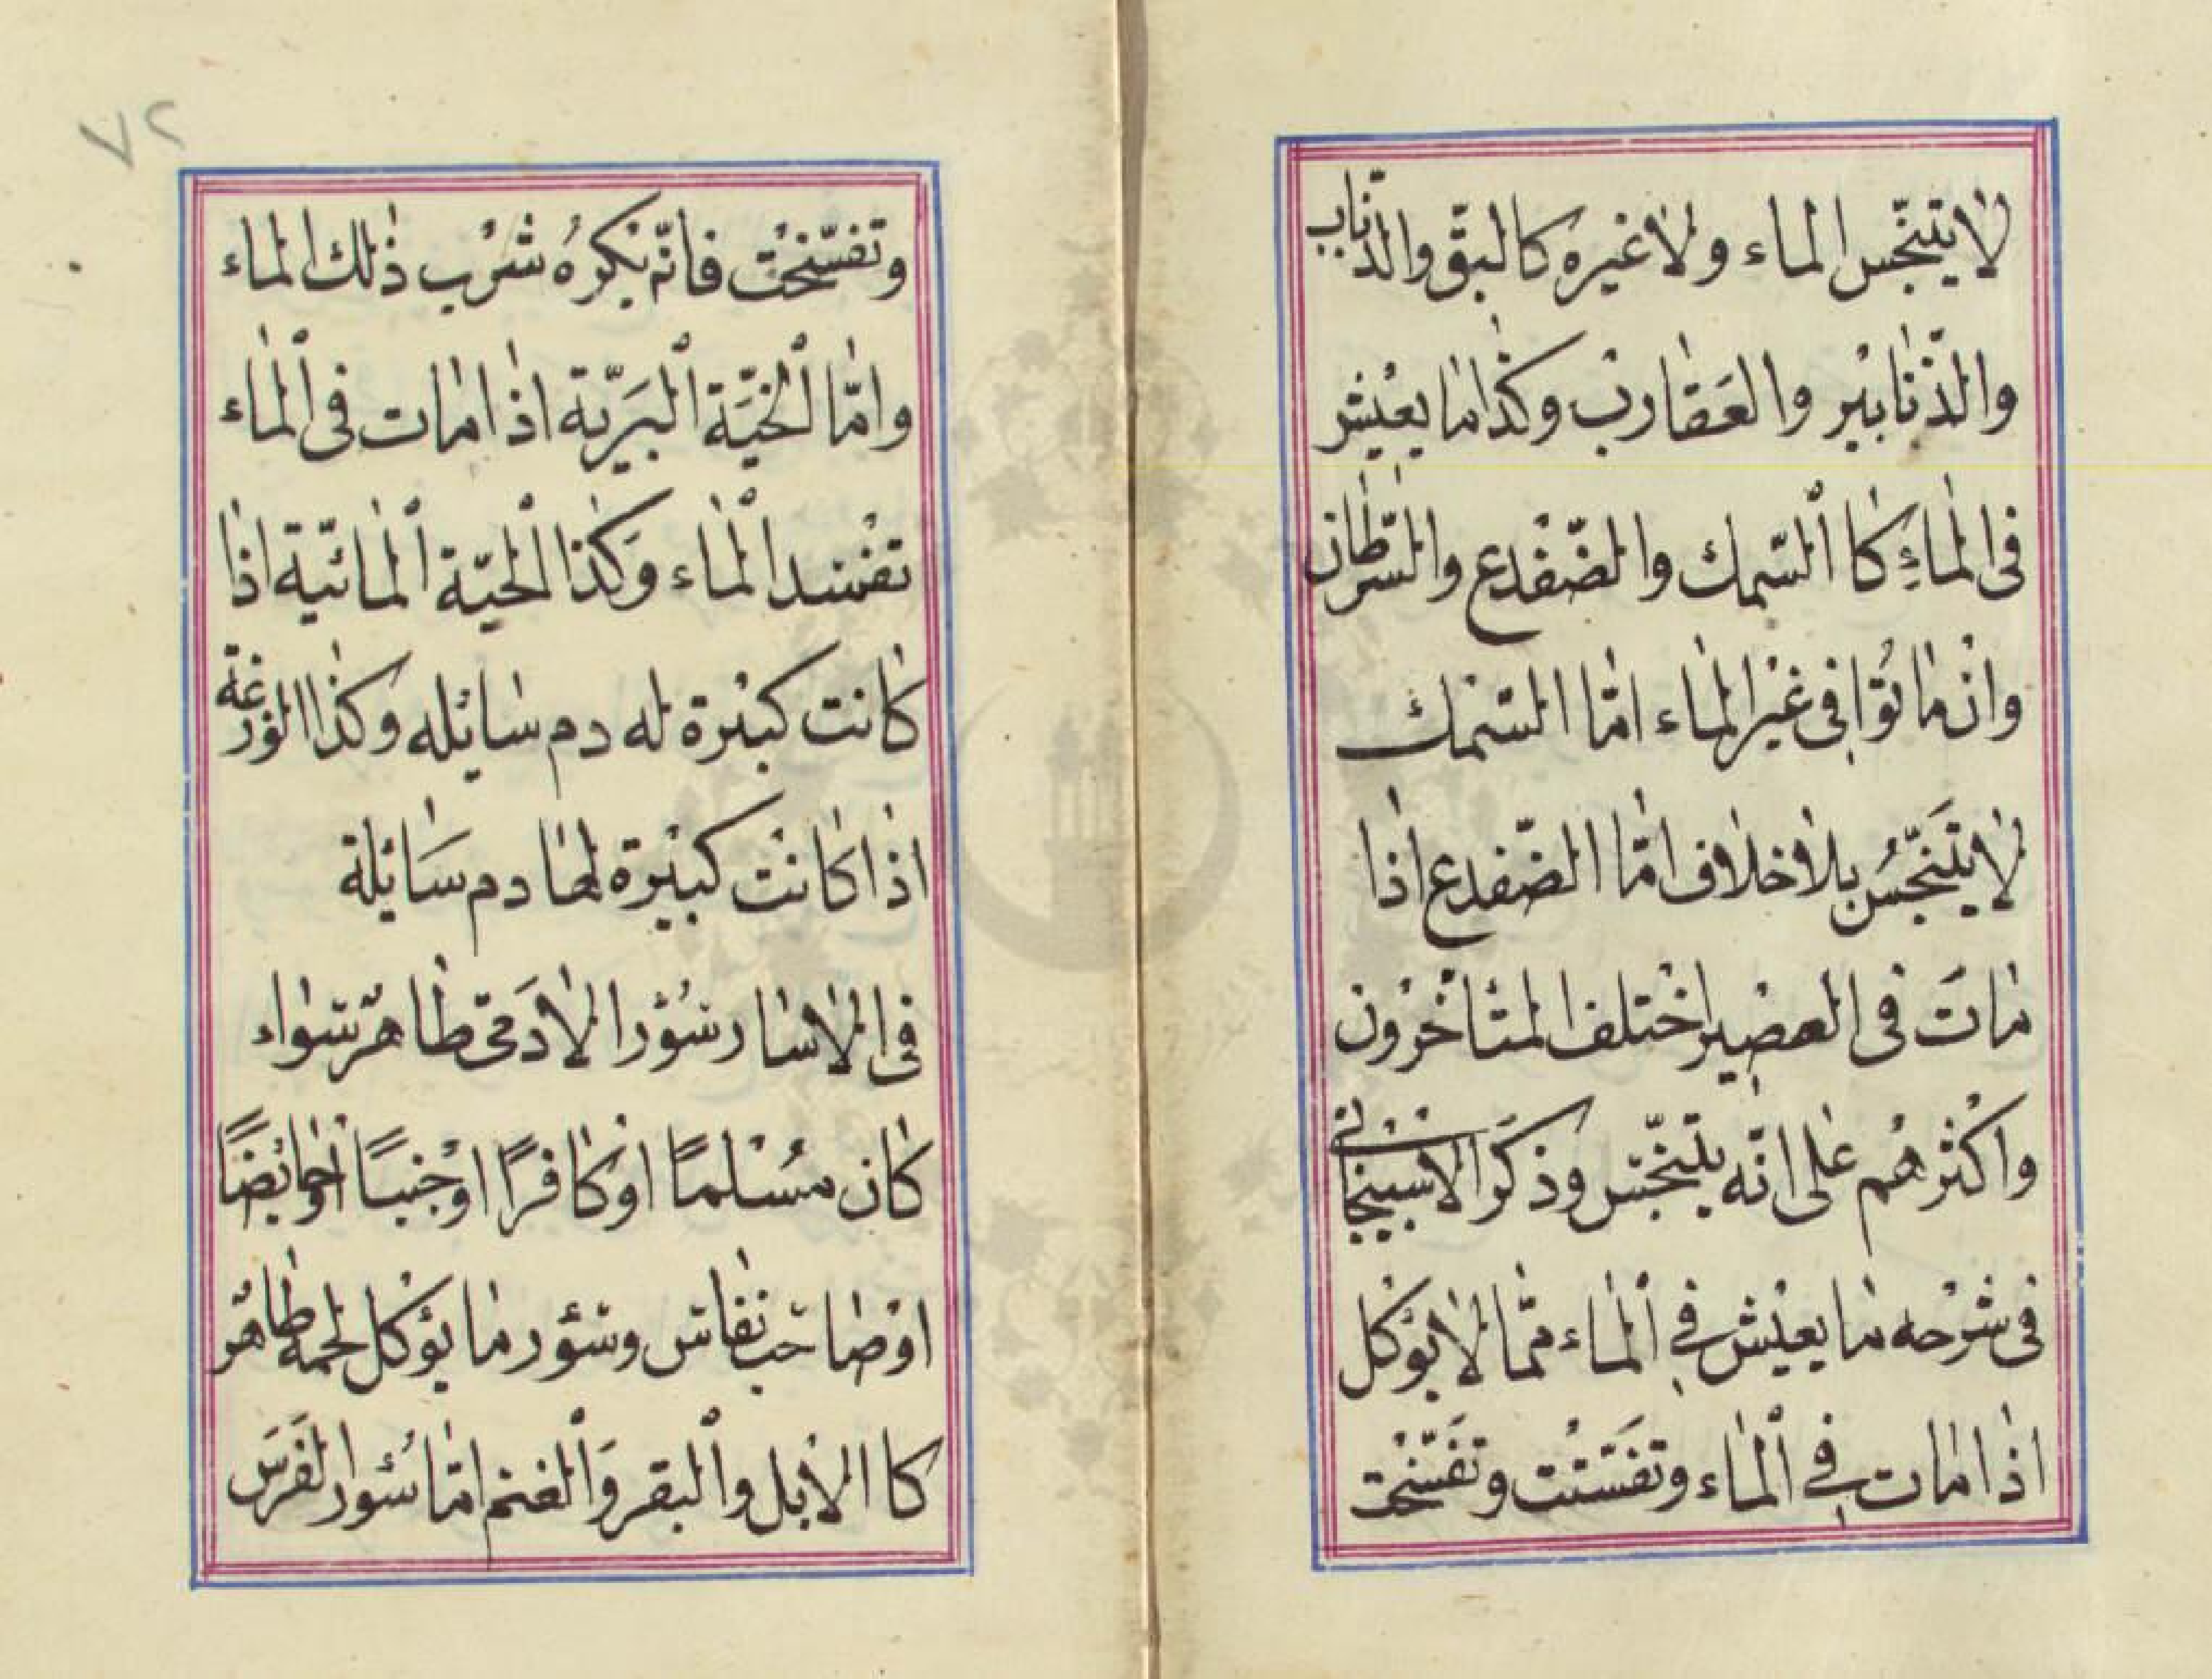 لا يتنجّس الماء ولا غيره كالبقّ والذّباب
والذّنابير والعقارب وكذا ما يعيش
فى الماءِ كا السّمك والضّفدع والسّرطان
وان ماتوا فى غير الماء امّا السّمك
لا يتنجّس بلا خلاف امّا الضّفدع اذا
مات فى العصير اختلف المتأخرون
واكثرهم على انّه يتنجّس وذكر الاسبيجانى
فى شرحه ما يعيش فى الماء ممّا لا يؤكل
اذا مات فى الماء وتفتّتت وتفسّخت
٧٢
وتفسّخت فانّه يكره شرب ذلك الماء
وامّا الحيّة البرّيّة اذا مات فى الماء
تفسد الماء وكذا الحيّة المائيّة اذا
كانت كبيرة له دم سايله وكذا الوزغة
اذا كانت كبيرة لها دم سايلة
فى الاسار سؤر الادمى طاهر سواء
كان مسلمًا او كافرًا او جنبًا ايضًا
او صاحب نفاس وسؤر ما يؤكل لحمه طاهر
كا الابل والبقر والغنم امّا سؤر الفرس